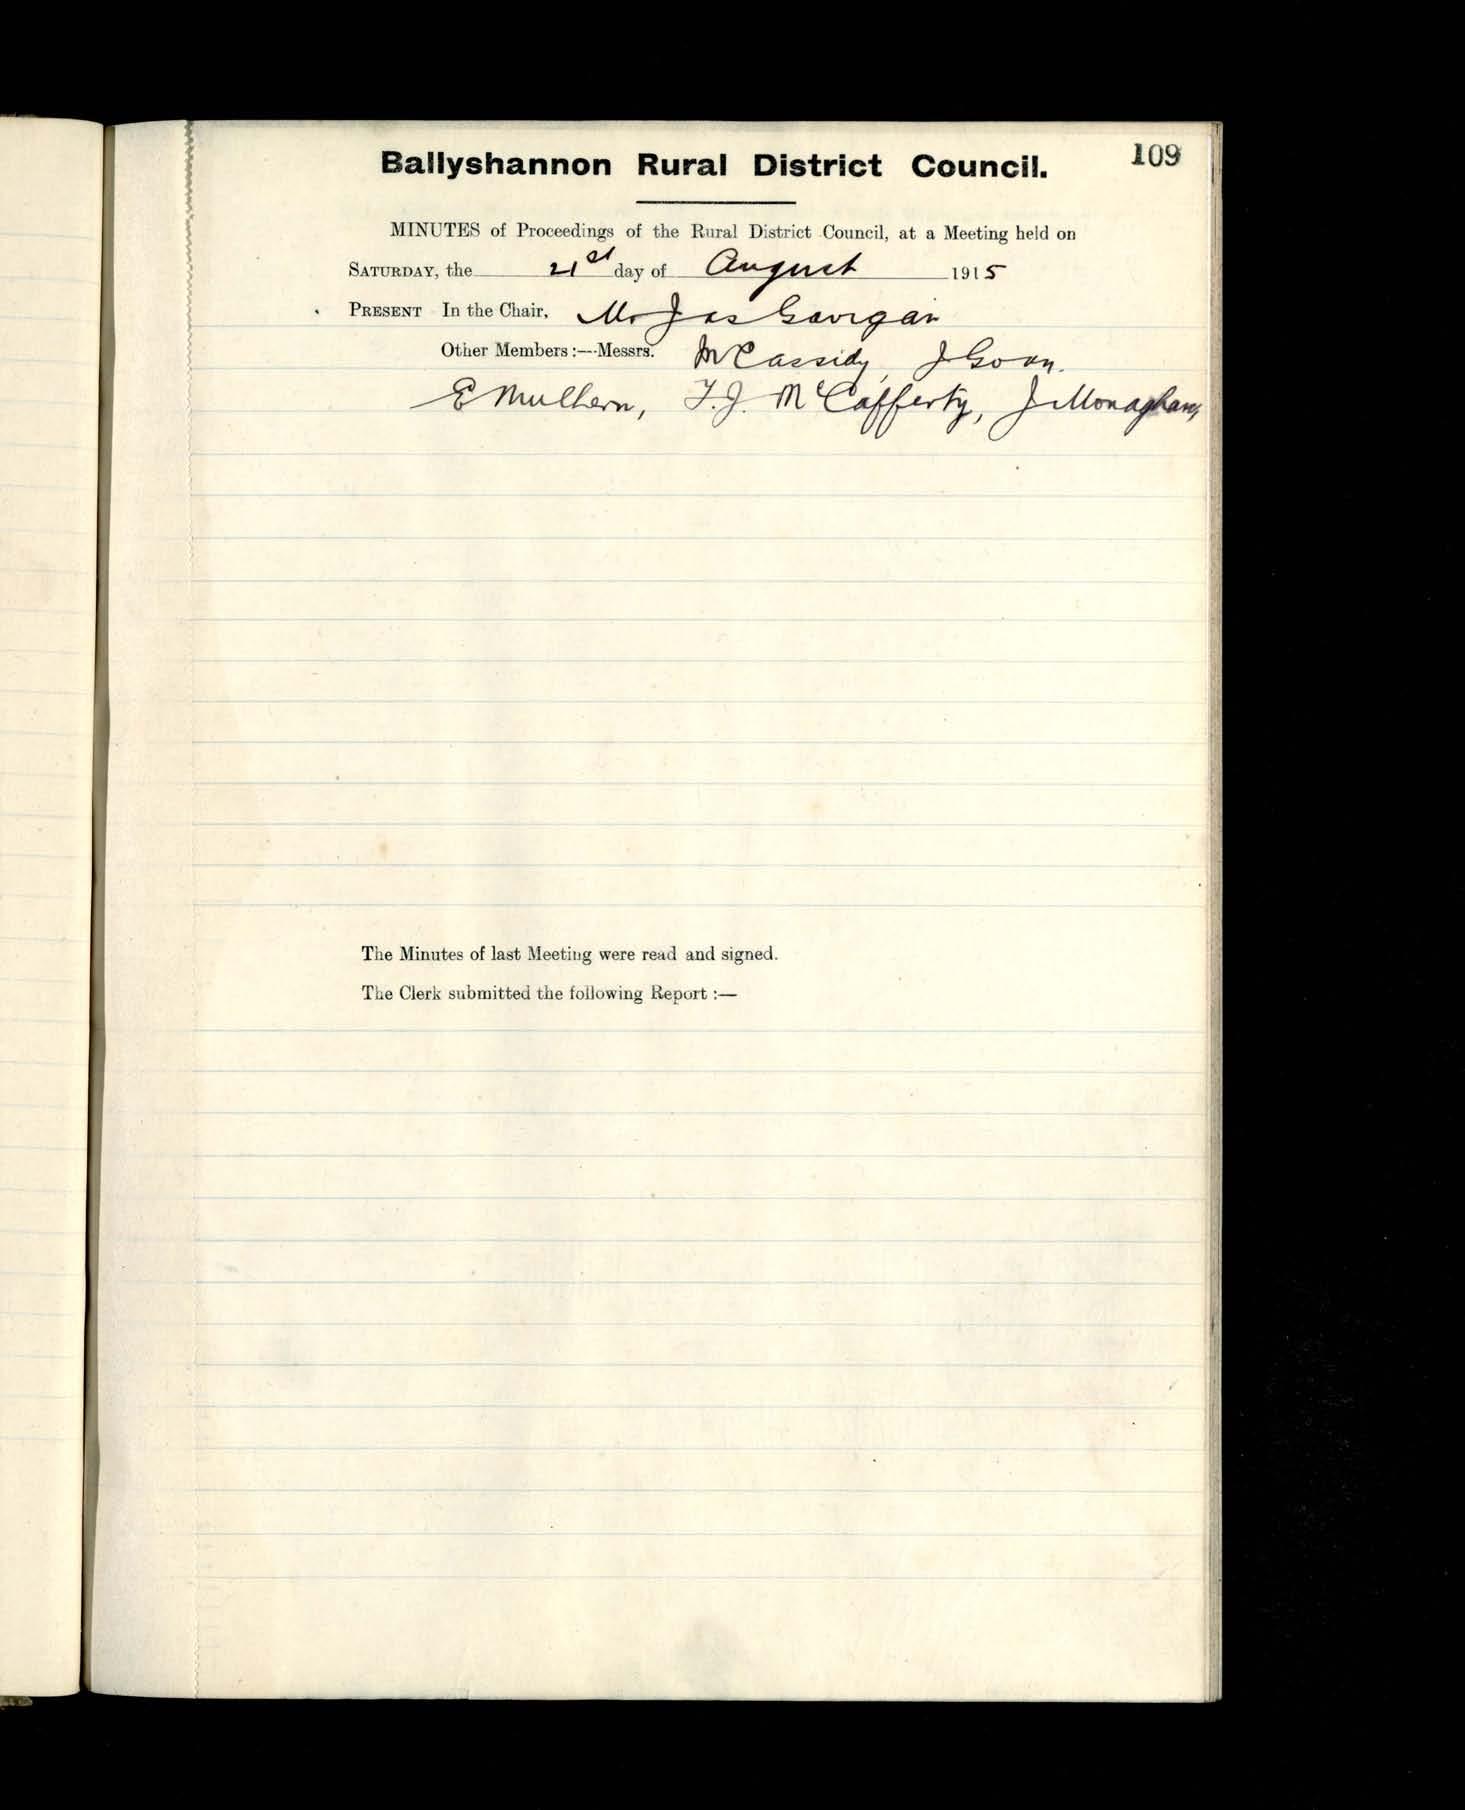 109
Ballyshannon Rural District Council.
MINUTES of Proceedings of the Rural District Council, at a Meeting held on
SATURDAY, the 21st day of August 1915
PRESENT In the Chair, Mr Jas Gavigan
Other Members:—Messrs. M Cassidy, J Goan.
E Mulhern, T.J. McCafferty, J Monaghan,
The Minutes of last Meeting were read and signed.
The Clerk submitted the following Report :—